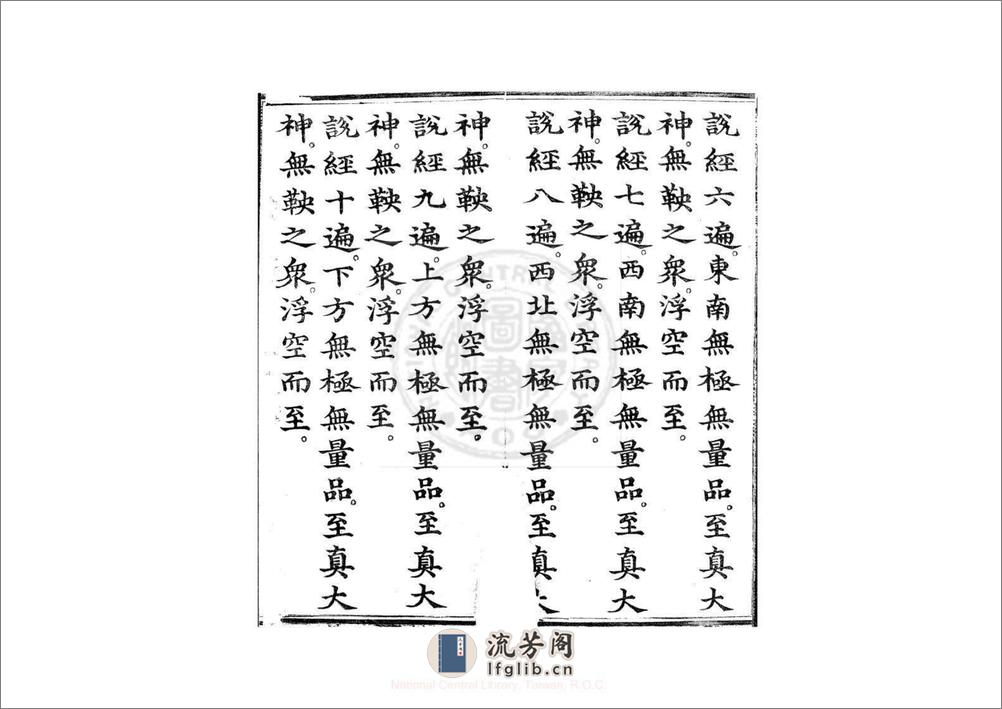 說經六遍。東南無極無量品。至真大
神。無鞅之衆。浮空而至。
說經七遍。西南無極無量品。至真大
神。無鞅之衆。浮空而至。
說經八遍。西北無極無量品。至真大
神。無鞅之衆。浮空而至。
說經九遍。上方無極無量品。至真大
神。無鞅之衆。浮空而至。
說經十遍。下方無極無量品。至真大
神。無鞅之衆。浮空而至。
流芳阁
lfglib.cn
National Central Library, Taiwan, R.O.C.